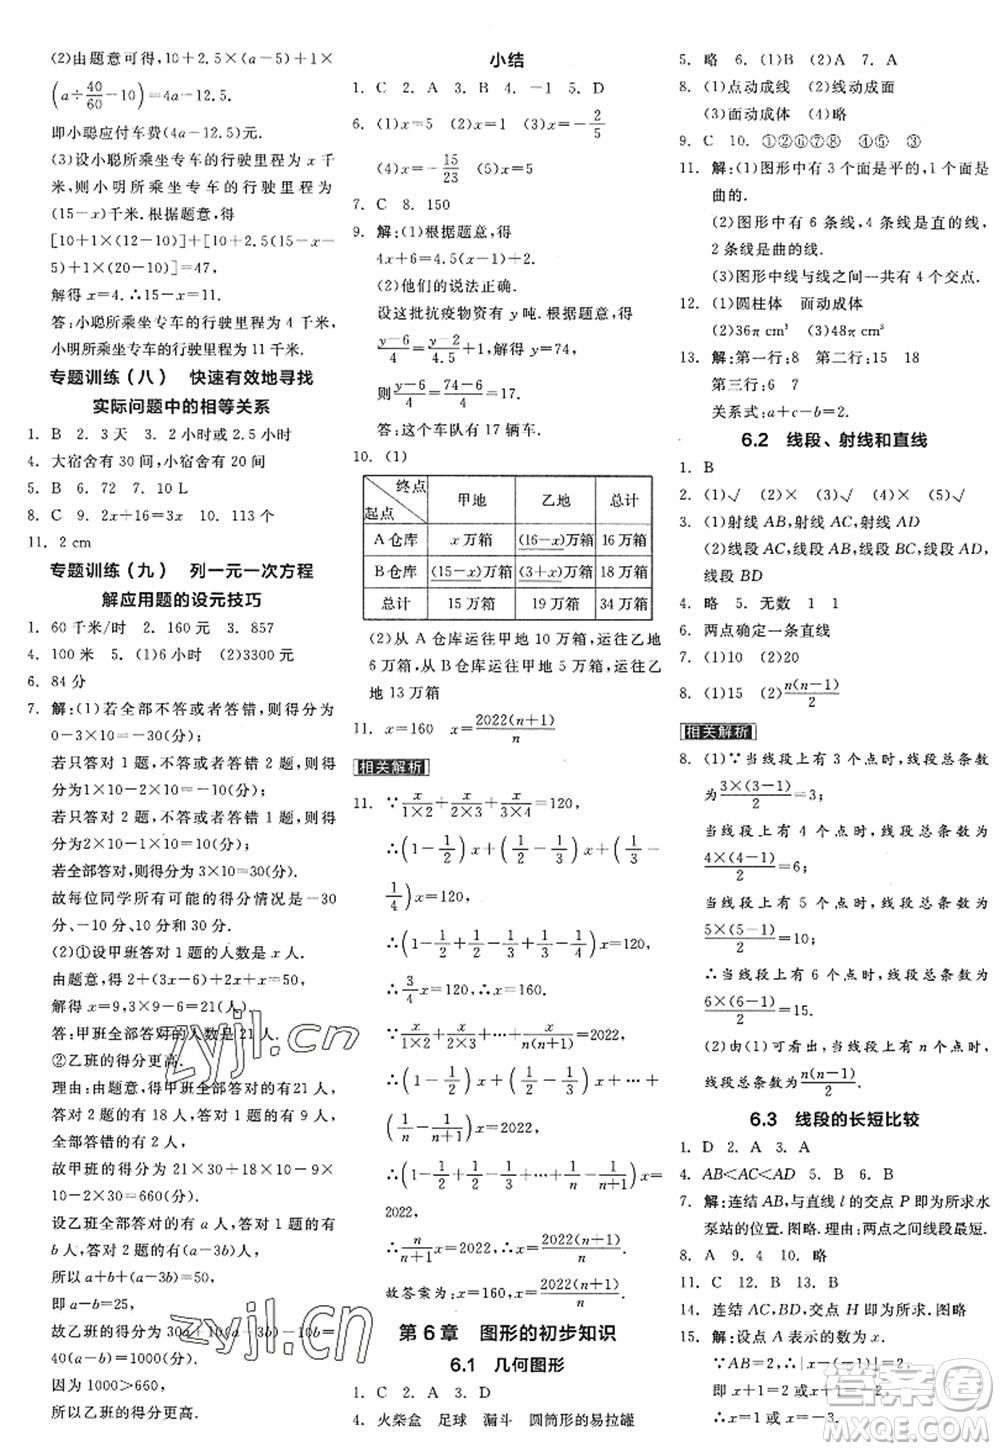 (2)由题意可得,10+2.5×(a-5)+1×
(a÷40/60-10)=4a-12.5.
即小聪应付车费(4a-12.5)元.
(3)设小聪所乘坐专车的行驶里程为 x 千
米,则小明所乘坐专车的行驶里程为
(15-x)千米.根据题意,得
[10+1×(12-10)]+[10+2.5(15-x-
5)+1×(20-10)]=47,
解得 x=4.∴15-x=11.
答:小聪所乘坐专车的行驶里程为 4 千米,
小明所乘坐专车的行驶里程为 11 千米.
专题训练（八） 快速有效地寻找
实际问题中的相等关系
1. B 2. 3 天 3. 2 小时或 2.5 小时
4. 大宿舍有 30 间,小宿舍有 20 间
5. B 6. 72 7. 10 L
8. C 9. 2x+16=3x 10. 113 个
11. 2 cm
专题训练（九） 列一元一次方程
解应用题的设元技巧
1. 60 千米/时 2. 160 元 3. 857
4. 100 米 5. (1)6 小时 (2)3300 元
6. 84 分
7. 解:(1)若全部不答或者答错,则得分为
0-3×10=-30(分);
若只答对 1 题,不答或者答错 2 题,则得分为
1×10-2×10=-10(分);
若只答对 2 题,不答或者答错 1 题,则得分为
2×10-1×10=10(分);
若全部答对,则得分为 3×10=30(分).
故每位同学所有可能的得分情况是-30
分、-10 分、10 分和 30 分.
(2)①设甲班答对 1 题的人数是 x 人.
由题意,得 2+(3x-6)+2x+x=50,
解得 x=9,3×9-6=21(人).
答:甲班全部答对的人数是 21 人.
②乙班的得分更高.
理由:由题意,得甲班全部答对的有21人,
答对 2 题的有 18 人,答对 1 题的有 9 人,
全部答错的有 2 人,
故甲班的得分为 21×30+18×10-9×
10-2×30=660(分).
设乙班全部答对的有 a 人,答对 1 题的有
b 人,则答对 2 题的有(a-3b)人,
所以 a+b+(a-3b)=50,
即 a-b=25,
故乙班的得分为 30a+10(a-3b)-10b=
40(a-b)=1000(分).
因为 1000>660,
所以乙班的得分更高.
小结
1. C 2. A 3. A 4. -1 5. D
6. (1)x=5 (2)x=1 (3)x=-2/5
(4)x=-15/23 (5)x=1
7. C 8. 150
9. 解:(1)根据题意,得
4x+6=4.5(x-2).
(2)他们的说法正确.
设这批抗疫物资有 y 吨.根据题意,得
(y-6)/4=y/4.5+2,解得 y=74.
则(y-6)/4=(74-6)/4=17.
答:这个车队有 17 辆车.
10. (1)
终点 起点 甲地 乙地 总计
A 仓库 x 万箱 (16-x)万箱 16 万箱
B 仓库 (15-x)万箱 (3+x)万箱 18 万箱
总计 15 万箱 19 万箱 34 万箱
(2)从 A 仓库运往甲地 10 万箱,运往乙地
6 万箱,从 B 仓库运往甲地 5 万箱,运往乙
地 13 万箱
11. x=160 x=2022(n+1)/n
相关解析
11. ∵x/(1×2)+x/(2×3)+x/(3×4)=120,
∴(1-1/2)x+(1/2-1/3)x+(1/3-
1/4)x=120,
∴(1-1/2+1/2-1/3+1/3-1/4)x=120,
∴3/4x=120,∴x=160.
∵x/(1×2)+x/(2×3)+…+x/(n(n+1))=2022,
∴(1-1/2)x+(1/2-1/3)x+…+
(1/n-1/(n+1))x=2022,
∴(1-1/2+1/2-1/3+…+1/n-1/(n+1))x=
2022,
∴n/(n+1)x=2022,∴x=2022(n+1)/n.
故答案为:x=2022(n+1)/n.
第 6 章 图形的初步知识
6.1 几何图形
1. C 2. A 3. D
4. 火柴盒 足球 漏斗 圆筒形的易拉罐
5. 略 6. (1)B (2)A 7. A
8. (1)点动成线 (2)线动成面
(3)面动成体 (4)略
9. C 10. ①②⑥⑦⑧ ④⑤ ③
11. 解:(1)图形中有 3 个面是平的,1 个面是
曲的.
(2)图形中有 6 条线,4 条线是直的线,
2 条线是曲的线.
(3)图形中线与线之间一共有 4 个交点.
12. (1)圆柱体 面动成体
(2)36π cm³ (3)48π cm³
13. 解:第一行:8 第二行:15 18
第三行:6 7
关系式:a+c-b=2.
6.2 线段、射线和直线
1. B
2. (1)√ (2)× (3)× (4)× (5)√
3. (1)射线 AB,射线 AC,射线 AD
(2)线段 AC,线段 AB,线段 BC,线段 AD,
线段 BD
4. 略 5. 无数 1 1
6. 两点确定一条直线
7. (1)10 (2)20
8. (1)15 (2)n(n-1)/2
相关解析
8. (1)∵当线段上有 3 个点时,线段总条数
为3×(3-1)/2=3;
当线段上有 4 个点时,线段总条数为
4×(4-1)/2=6;
当线段上有 5 个点时,线段总条数为
5×(5-1)/2=10;
∴当线段上有 6 个点时,线段总条数为
6×(6-1)/2=15.
(2)由(1)可看出,当线段上有 n 个点时,
线段总条数为n(n-1)/2.
6.3 线段的长短比较
1. D 2. A 3. A
4. AB<AC<AD 5. B 6. B
7. 解:连结 AB,与直线 l 的交点 P 即为所求水
泵站的位置.图略.理由:两点之间线段最短.
8. A 9. 4 10. 略
11. C 12. B 13. B
14. 连结 AC,BD,交点 H 即为所求.图略
15. 解:设点 A 表示的数为 x.
∵AB=2,∴|x-(-1)|=2,
∴x+1=2或x+1=-2,
∴x=1或 x=-3.
zyjl.cn
zyjl.cn
答案圈
MXQE.COM